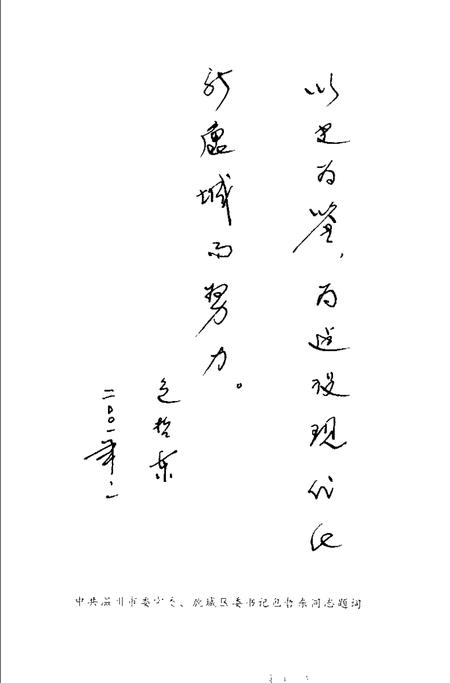 以史为鉴,为建设现代化
新鹿城而努力。
包哲东
二〇〇一年.二
中共温州市委常委、鹿城区委书记包哲东同志题词